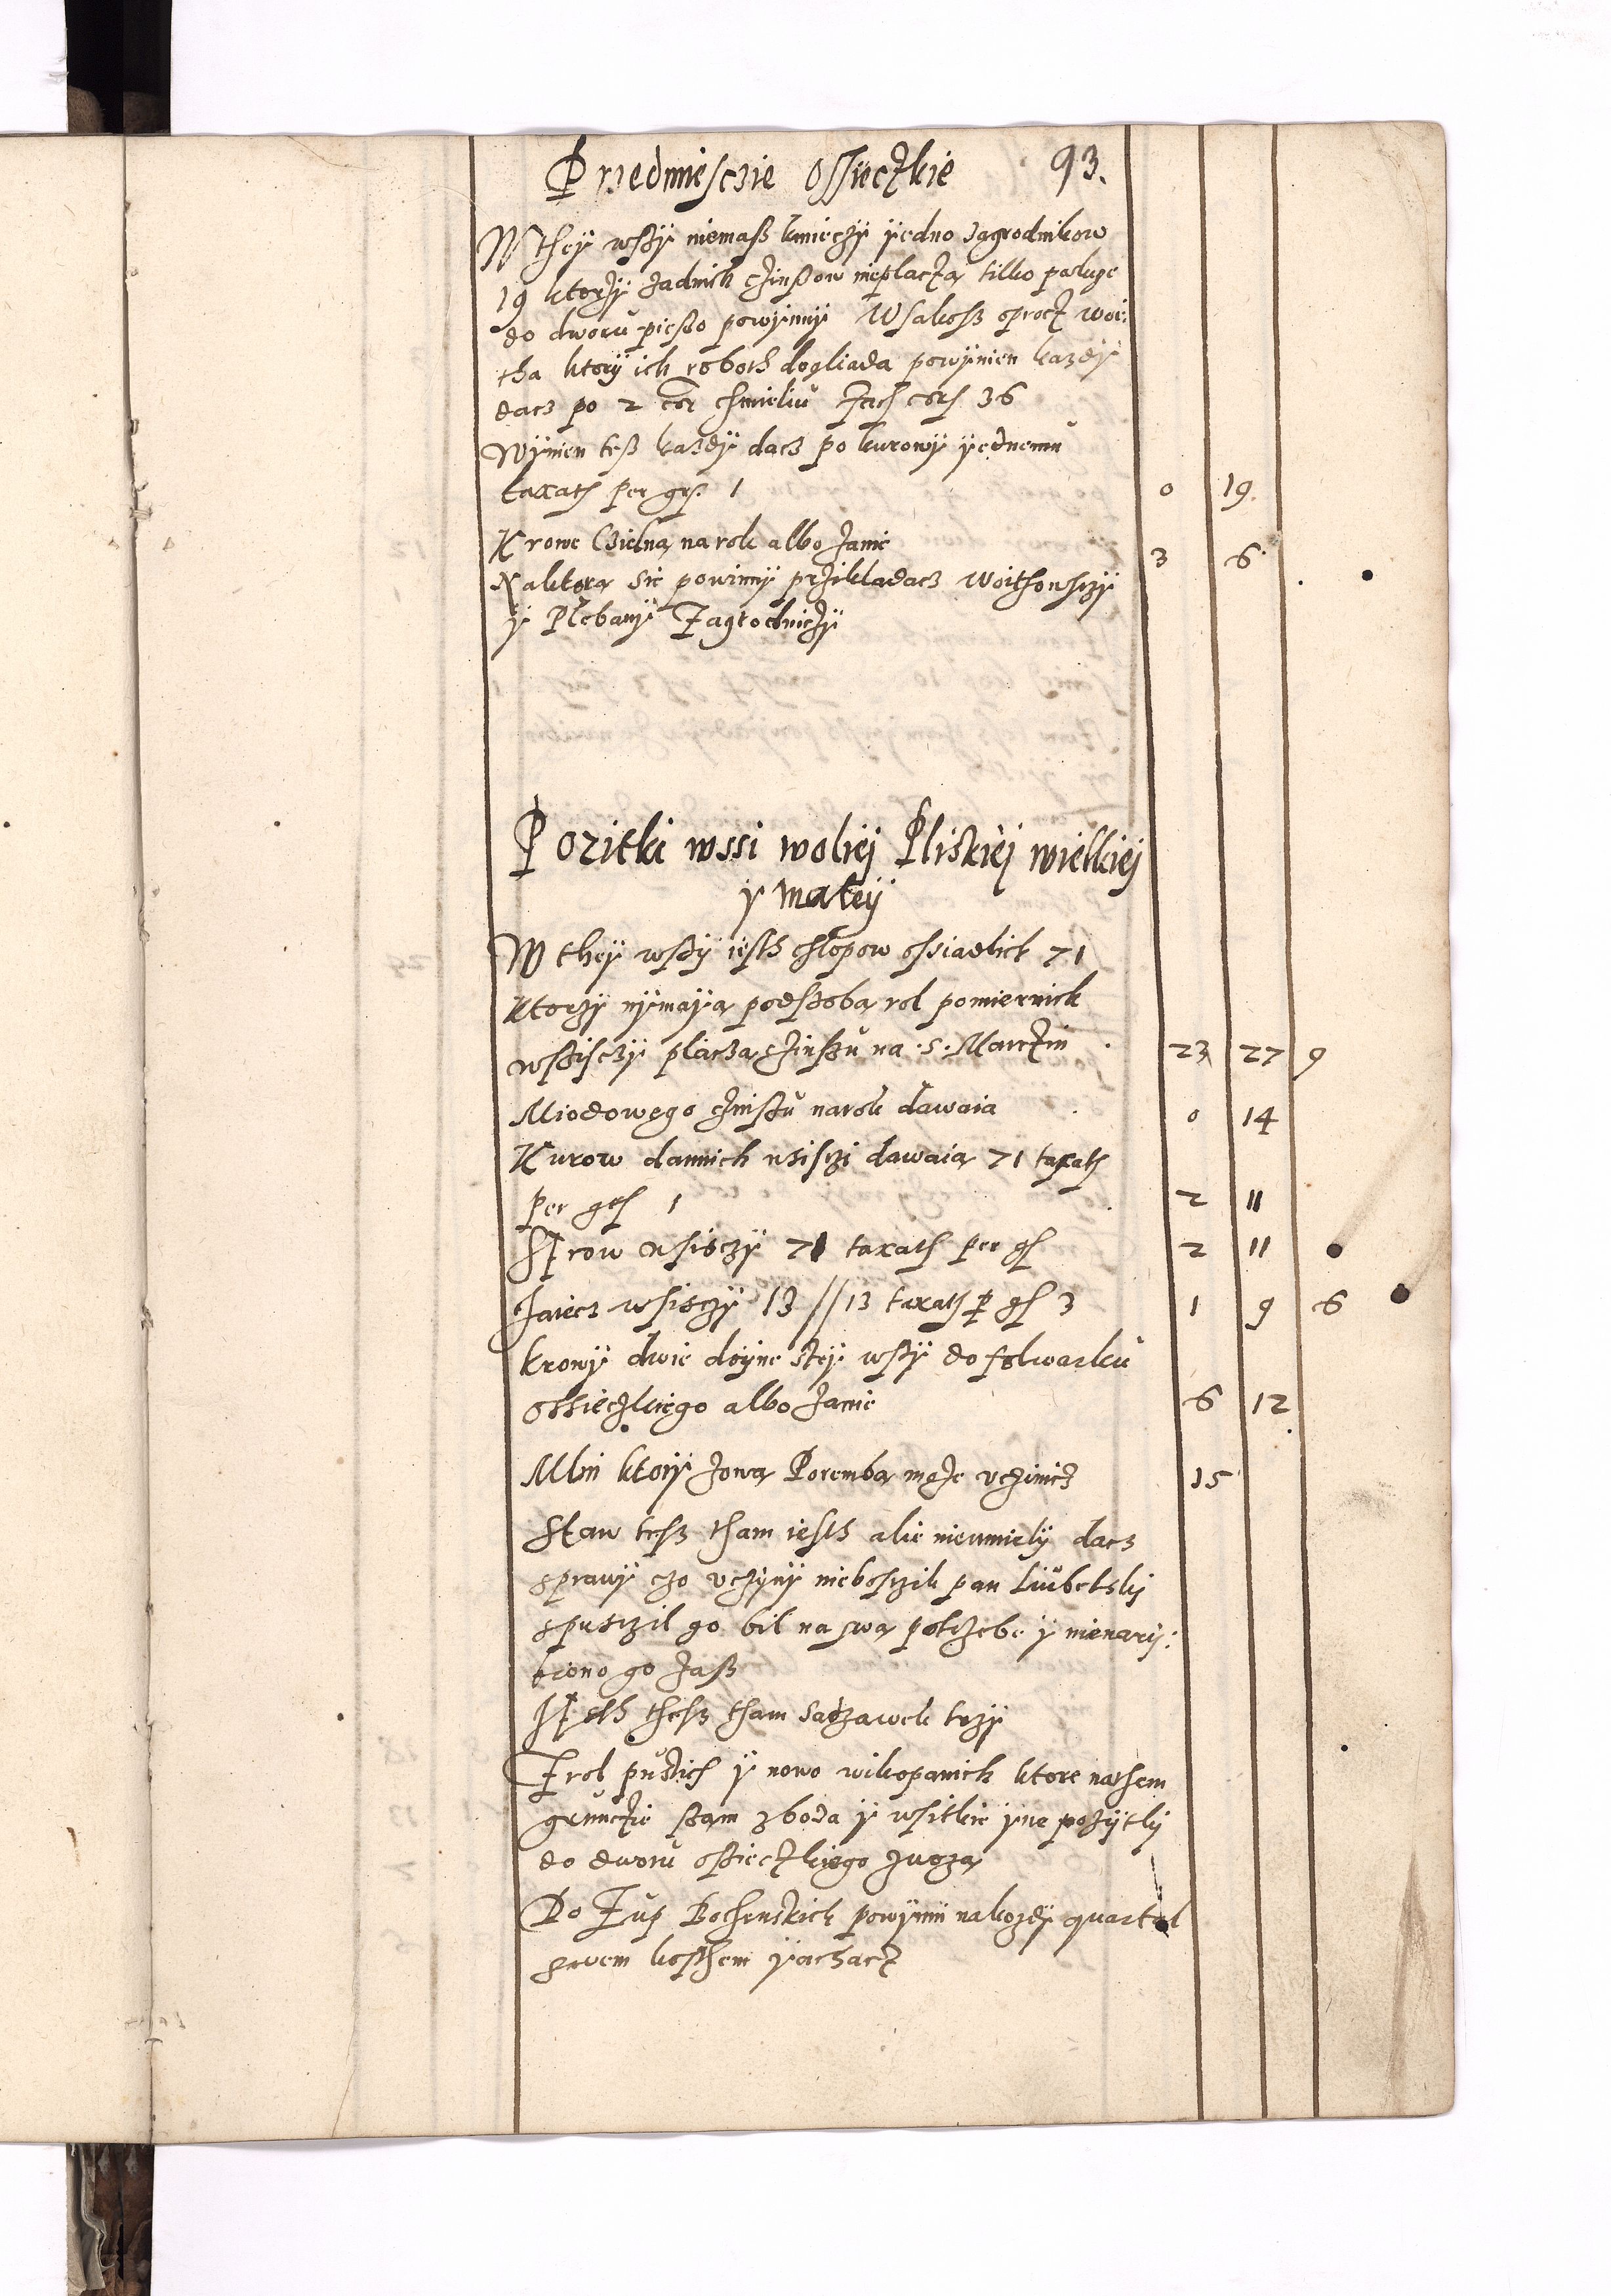 Przedmiesczie Ossieczkie 93.
W they wsży niemaß kmieczy yedno zagrodnikow
19 ktorży żadnich czinßow nieplacżą tilko posluge
do dworu pießo powynny Wsakosz oprocz woi:
tha ktory ich roboth dogliada powynien kazdy
dacz po 2 cor chmieliu facit cor 36
Wynien teß kazdy dacz po kurowy yednemu
taxath per grß 1 0 19
Krowe Czielną na rok albo zanie 3 6
Naktorą sie powinny przikladacz woithowsczy
y Plebany Zagrodniczy
Pozitki wssi woliej Pliskiej wielkiej
y małey
W they wsży iesth chłopow ossiadlich 71
Ktorzy nymayą podszobą rol pomiernich
wßisczy placzą czinßu na .S. Marczin 23 27 9
Miodowego czinßu narok dawaia 0 14
Kurow dannich wsisczi dawaią 71 taxath
per grs 1 2 11
Serow wsisczy 71 taxath per gs 2 11
Jaiecz wsisczy 13 // 13 taxath p gs 3 1 9 6
krowy dwie doyne stey wsży do folwarku
ossieczkiego albo zanie 6 12
Mlin ktory zową Porembą może vczinicz 15
Staw tesz tham iesth alie nieumiely dacz
sprawy czo vczyny nieboszczik pan Liubelsky
spusczil go bil na swą potrzebe y nienary:
biono go zaß
Jesth thesz tham sadzawek trzy
Z rol pustich y nowo wikopanich ktore nathem
grunczie stam zboża y wsitkie yne pożytky
do dworu oßieczkiego zwożą
Do Zup Bochenskich powynny nakożdy quartal
swem kosthem yachacz